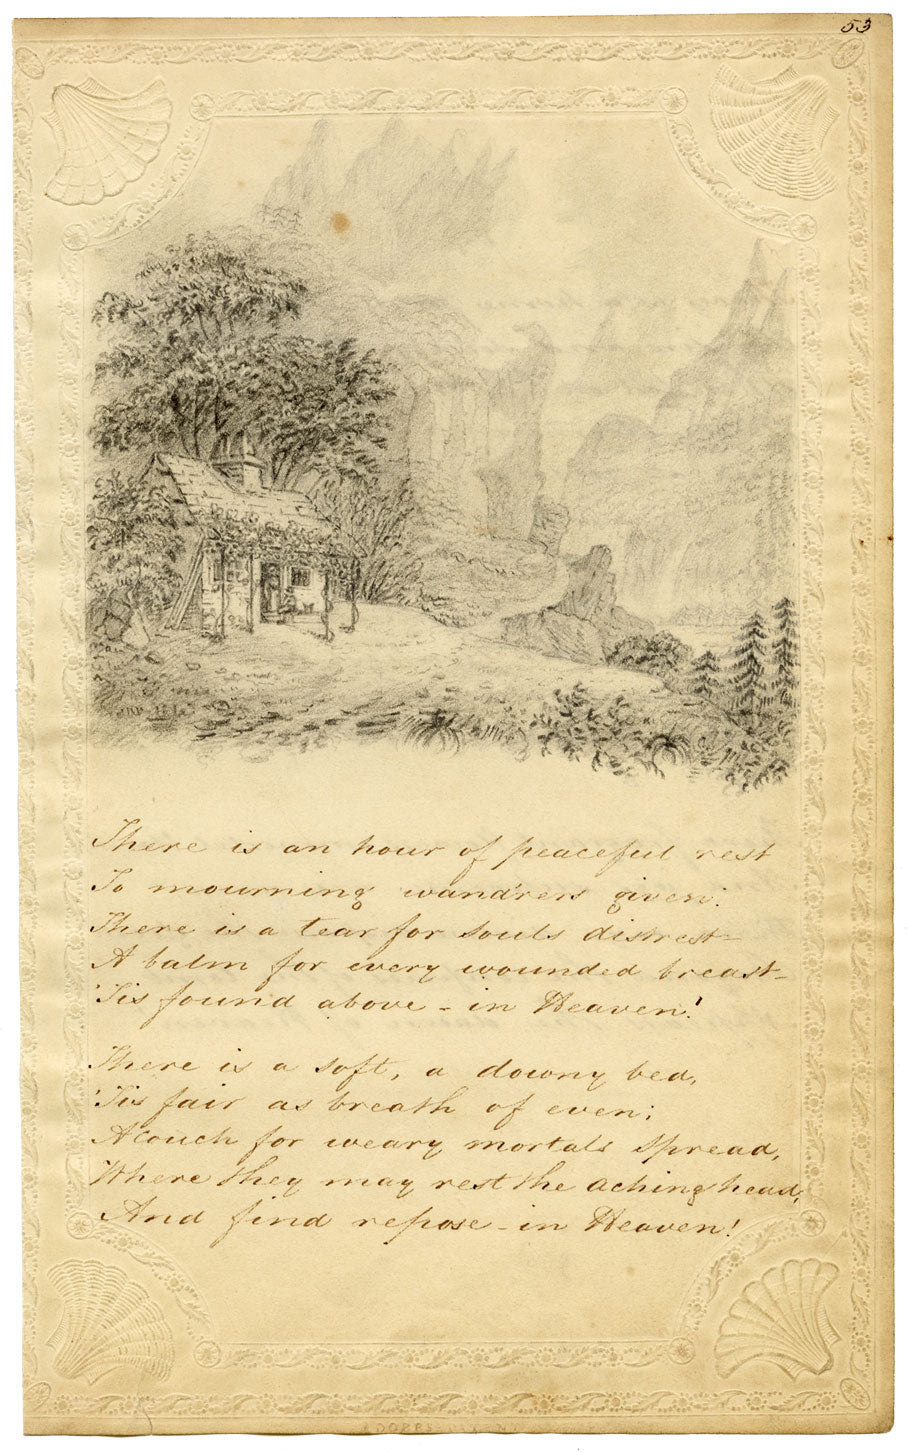 53
There is an hour of peaceful rest
To mourning wand'rers given:
There is a tear for souls distrest—
A balm for every wounded breast—
'Tis found above – in Heaven!
There is a soft, a downy bed,
'Tis fair as breath of even;
A couch for weary mortals spread,
Where they may rest the aching head,
And find repose – in Heaven!
DOBBS